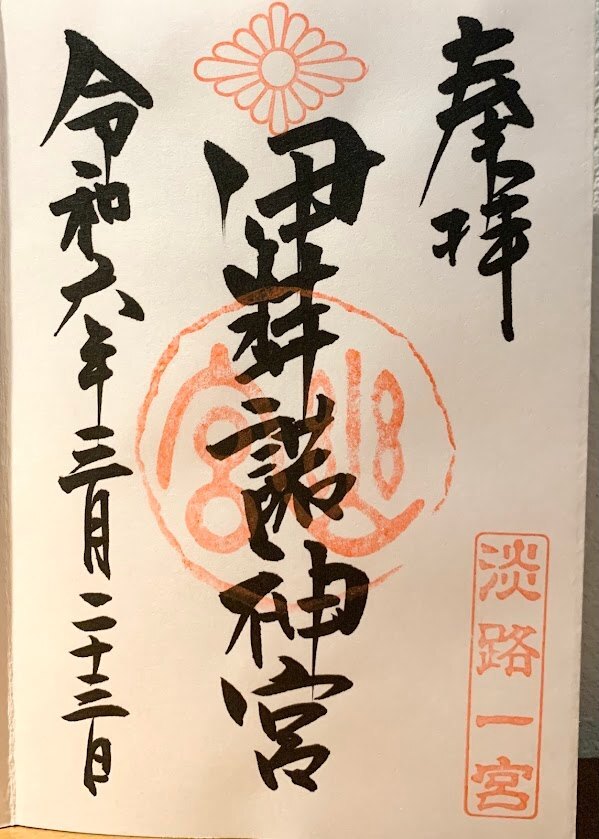 奉拝
淡路一宮
伊弉諾神宮
令和六年三月二十三日